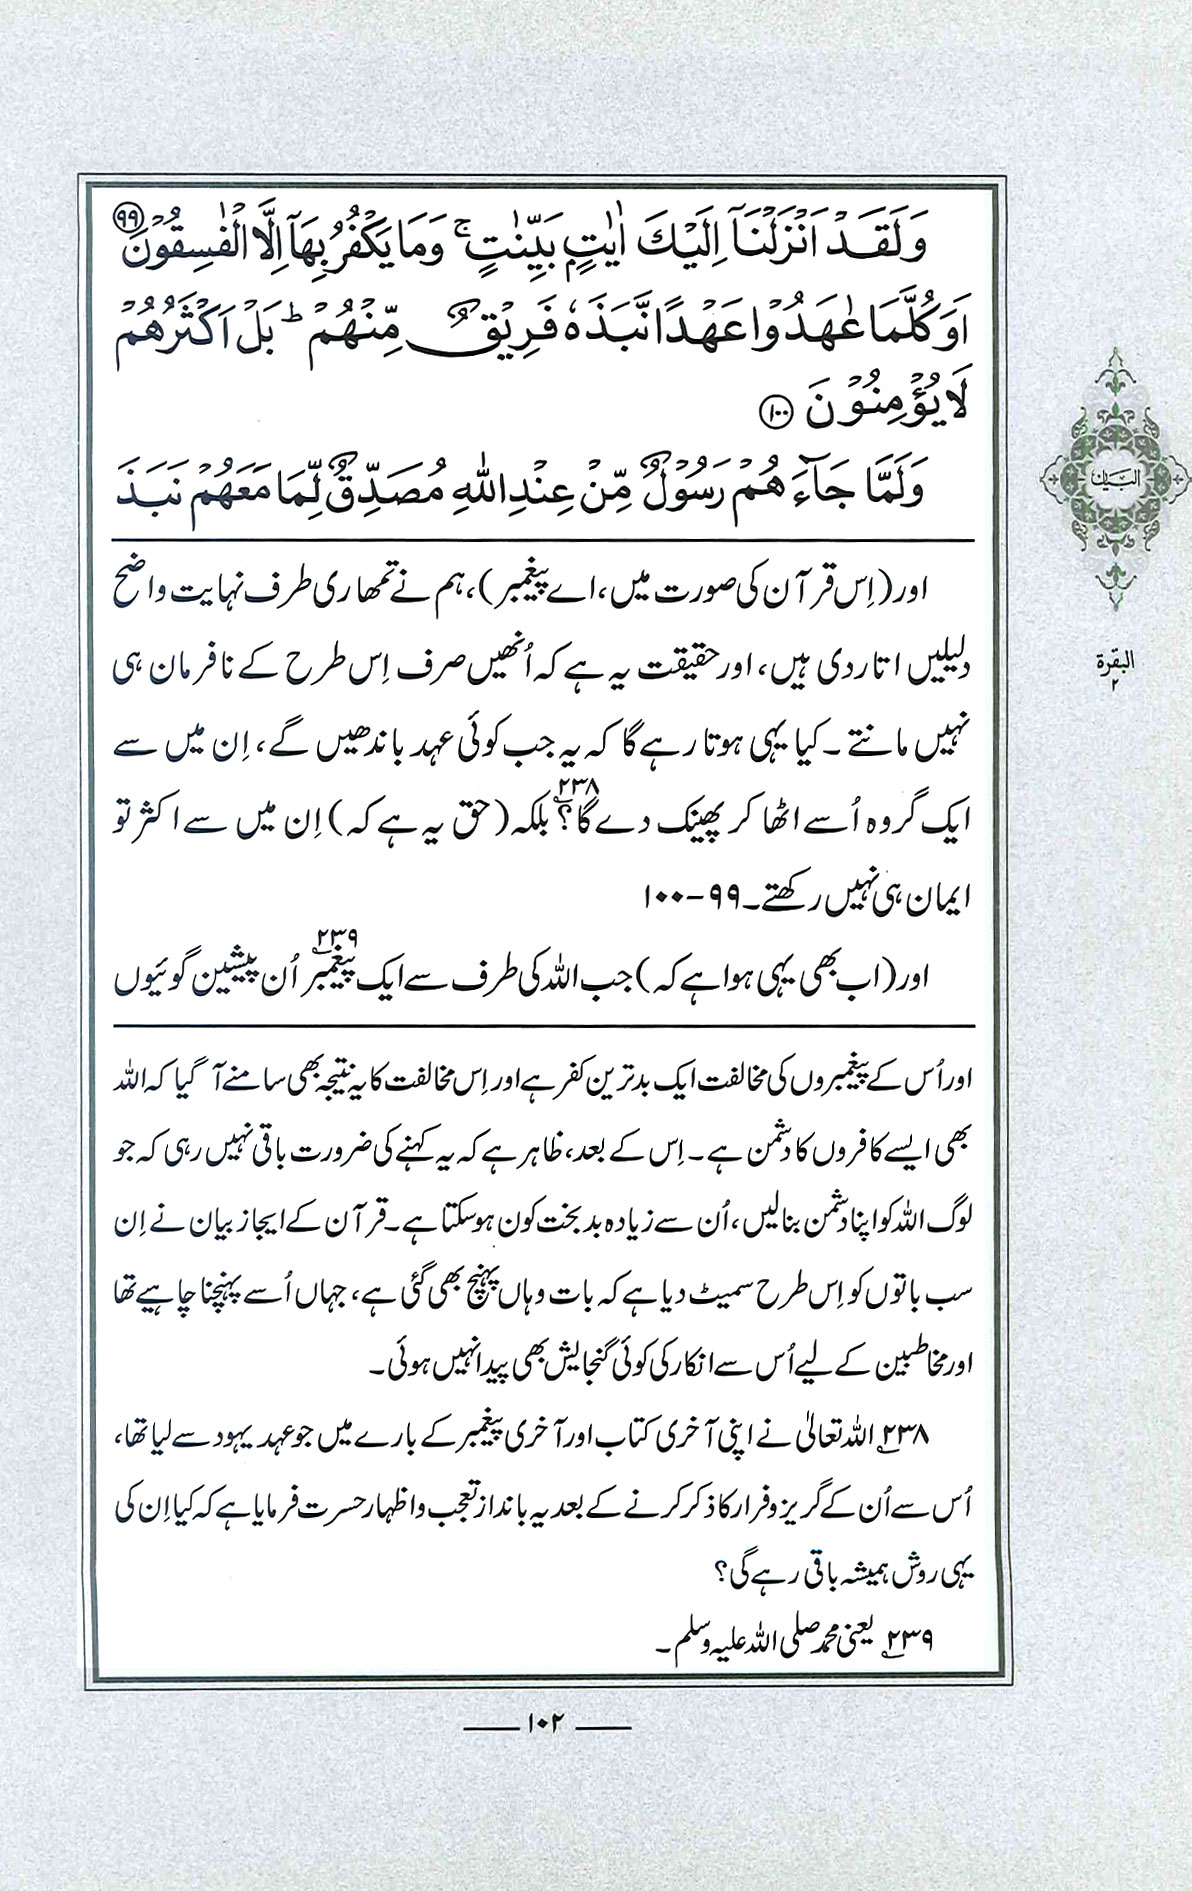 وَلَقَدْ اَنْزَلْنَآ اِلَيْكَ اٰيٰتٍۭ بَيِّنٰتٍ ۚ وَمَا يَكْفُرُ بِهَآ اِلَّا الْفٰسِقُوْنَ ﴿۹۹﴾
اَوَكُلَّمَا عٰهَدُوْا عَهْدًا نَّبَذَهٗ فَرِيْقٌ مِّنْهُمْ ؕ بَلْ اَكْثَرُهُمْ
لَا يُؤْمِنُوْنَ ﴿۱۰۰﴾
وَلَمَّا جَآءَهُمْ رَسُوْلٌ مِّنْ عِنْدِ اللّٰهِ مُصَدِّقٌ لِّمَا مَعَهُمْ نَبَذَ
اور (اِس قرآن کی صورت میں، اے پیغمبر)، ہم نے تمھاری طرف نہایت واضح
دلیلیں اتار دی ہیں، اور حقیقت یہ ہے کہ اُنھیں صرف اِس طرح کے نافرمان ہی
نہیں مانتے ۔ کیا یہی ہوتا رہے گا کہ یہ جب کوئی عہد باندھیں گے، اِن میں سے
ایک گروہ اُسے اٹھا کر پھینک دے گا؟۲۳۸ بلکہ (حق یہ ہے کہ) اِن میں سے اکثر تو
ایمان ہی نہیں رکھتے۔ ۹۹-۱۰۰
اور (اب بھی یہی ہوا ہے کہ) جب اللہ کی طرف سے ایک پیغمبر۲۳۹ اُن پیشین گوئیوں
اور اُس کے پیغمبروں کی مخالفت ایک بدترین کفر ہے اور اِس مخالفت کا یہ نتیجہ بھی سامنے آ گیا کہ اللہ
بھی ایسے کافروں کا دشمن ہے۔ اِس کے بعد، ظاہر ہے کہ یہ کہنے کی ضرورت باقی نہیں رہی کہ جو
لوگ اللہ کو اپنا دشمن بنا لیں، اُن سے زیادہ بدبخت کون ہو سکتا ہے۔ قرآن کے ایجاز بیان نے اِن
سب باتوں کو اِس طرح سمیٹ دیا ہے کہ بات وہاں پہنچ بھی گئی ہے، جہاں اُسے پہنچنا چاہیے تھا
اور مخاطبین کے لیے اُس سے انکار کی کوئی گنجایش بھی پیدا نہیں ہوئی۔
۲۳۸ اللہ تعالیٰ نے اپنی آخری کتاب اور آخری پیغمبر کے بارے میں جو عہد یہود سے لیا تھا،
اُس سے اُن کے گریز و فرار کا ذکر کرنے کے بعد یہ بانداز تعجب و اظہار حسرت فرمایا ہے کہ کیا اِن کی
یہی روش ہمیشہ باقی رہے گی؟
۲۳۹ یعنی محمد صلی اللہ علیہ وسلم۔
۱۰۲
البیان
البقرة
۲